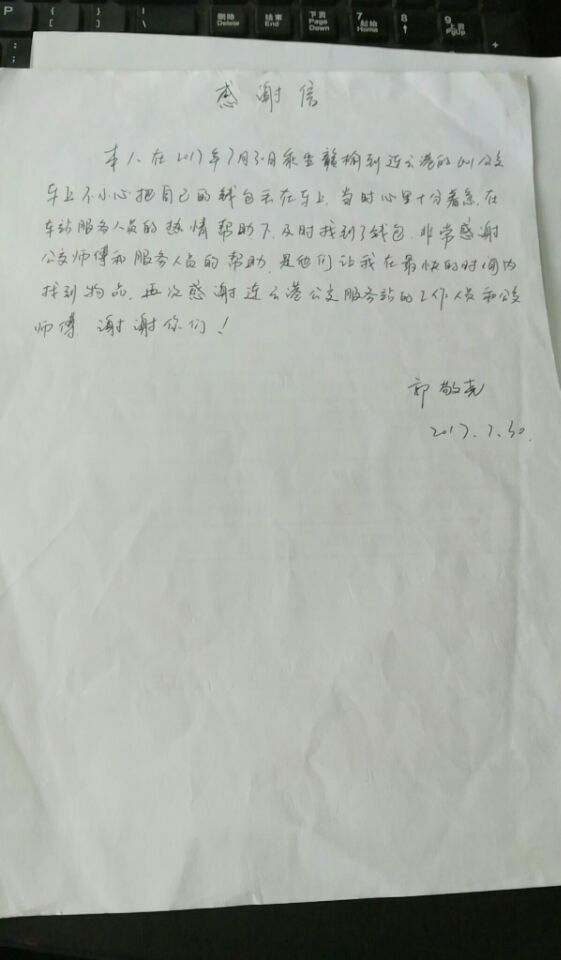 P
{
[
}
]
|
\
删除
Delete
结束
End
下页
Page
Down
7
起始
Home
8
↑
9
上页
PgUp
:
;
+
感谢信
本人在2017年7月30日乘坐赣榆到连云港的公交
车上不小心把自己的钱包丢在车上,当时心里十分着急,在
车站服务人员的热情帮助下,及时找到了钱包,非常感谢
公交师傅和服务人员的帮助,是他们让我在最快的时间内
找到物品,再次感谢连云港公交服务站的工作人员和公交
师傅 谢谢你们!
郭敬尧
2017.7.30.